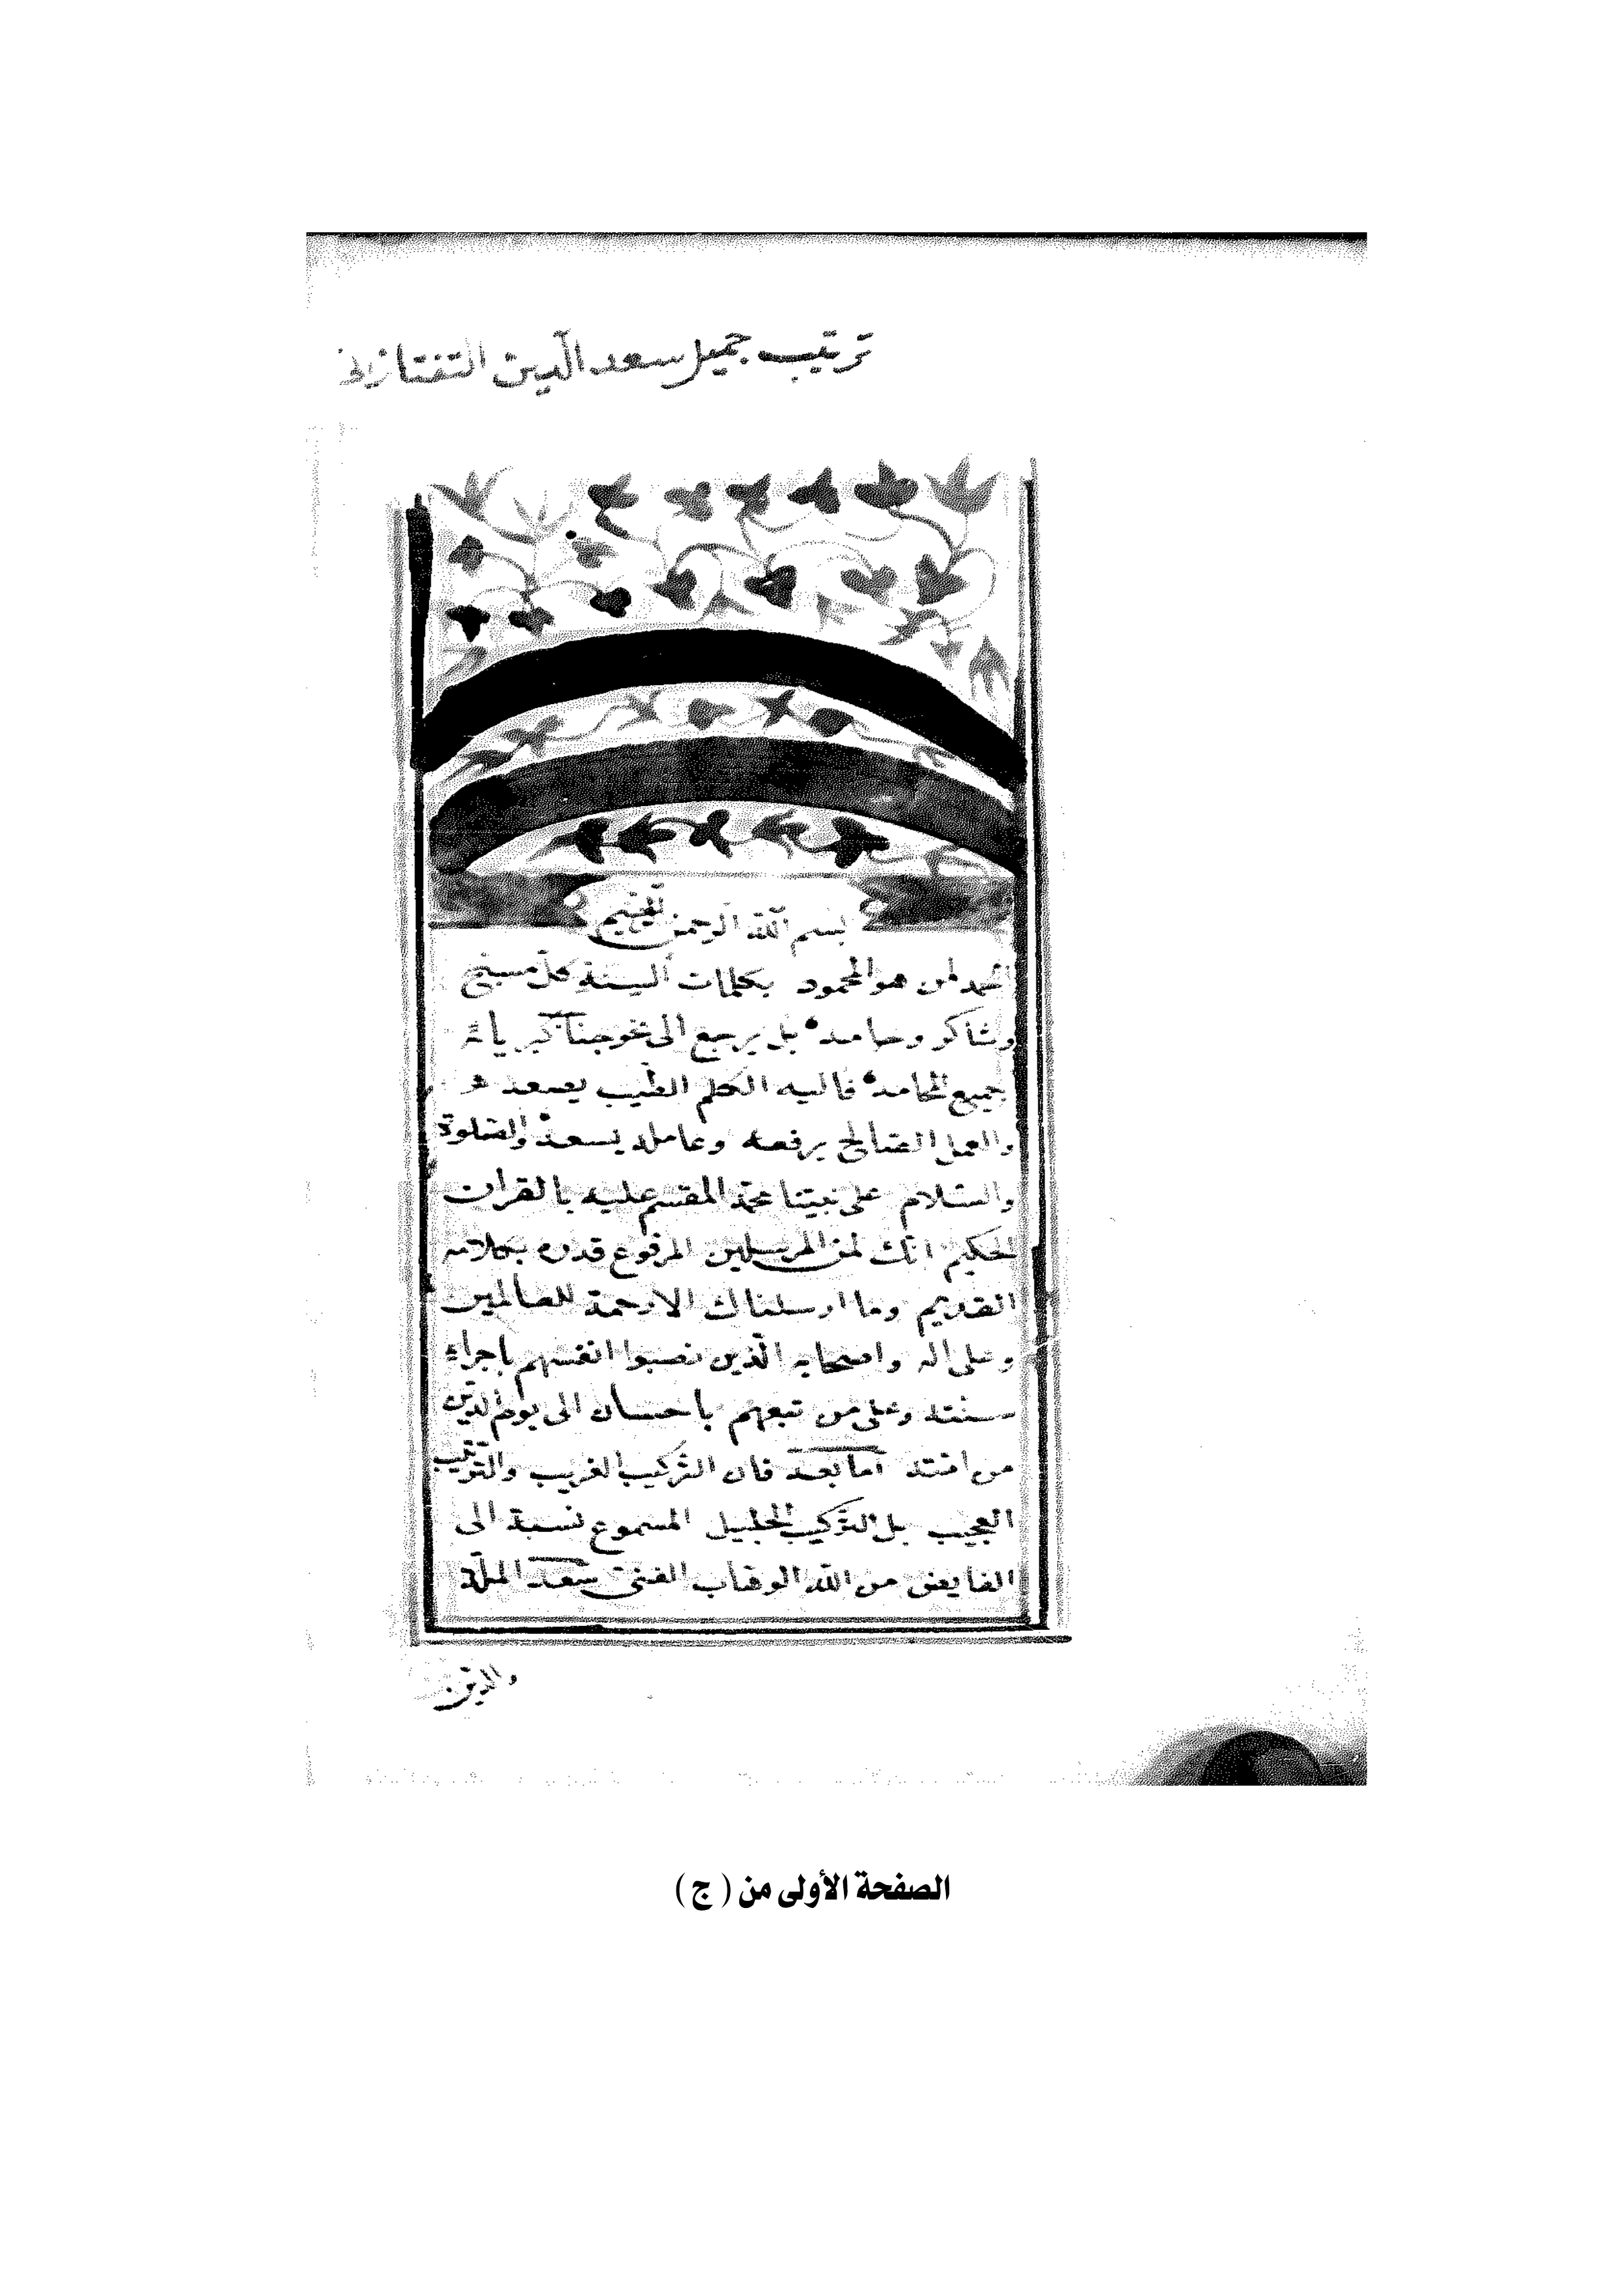 ترتيب جميل سعد الدين التفتازاني
بسم الله الرحمن الرحيم
الحمد لمن هو المحمود بكلمات السنة كل مسبح
وشاكر وحامد بل يرجع الى نحو جناب كبريائه
جميع المحامد فاليه الكلم الطيب يصعد
والعمل الصالح يرفعه وعامله يسعد والصلوة
والسلام على نبينا محمد المقسم عليه بالقران
الحكيم انك لمن المرسلين المرفوع قدره بكلامه
القديم وما ارسلناك الا رحمة للعالمين
وعلى اله واصحابه الذين نصبوا انفسهم باجراء
سنته وعلى من تبعهم باحسان الى يوم الدين
من امته اما بعد فان التركيب الغريب والترتيب
العجيب بل التركيب الجليل المسموع نسبة الى
الفايض من الله الوهاب الغنى سعد الملة
والدين
الصفحة الأولى من ( ج )